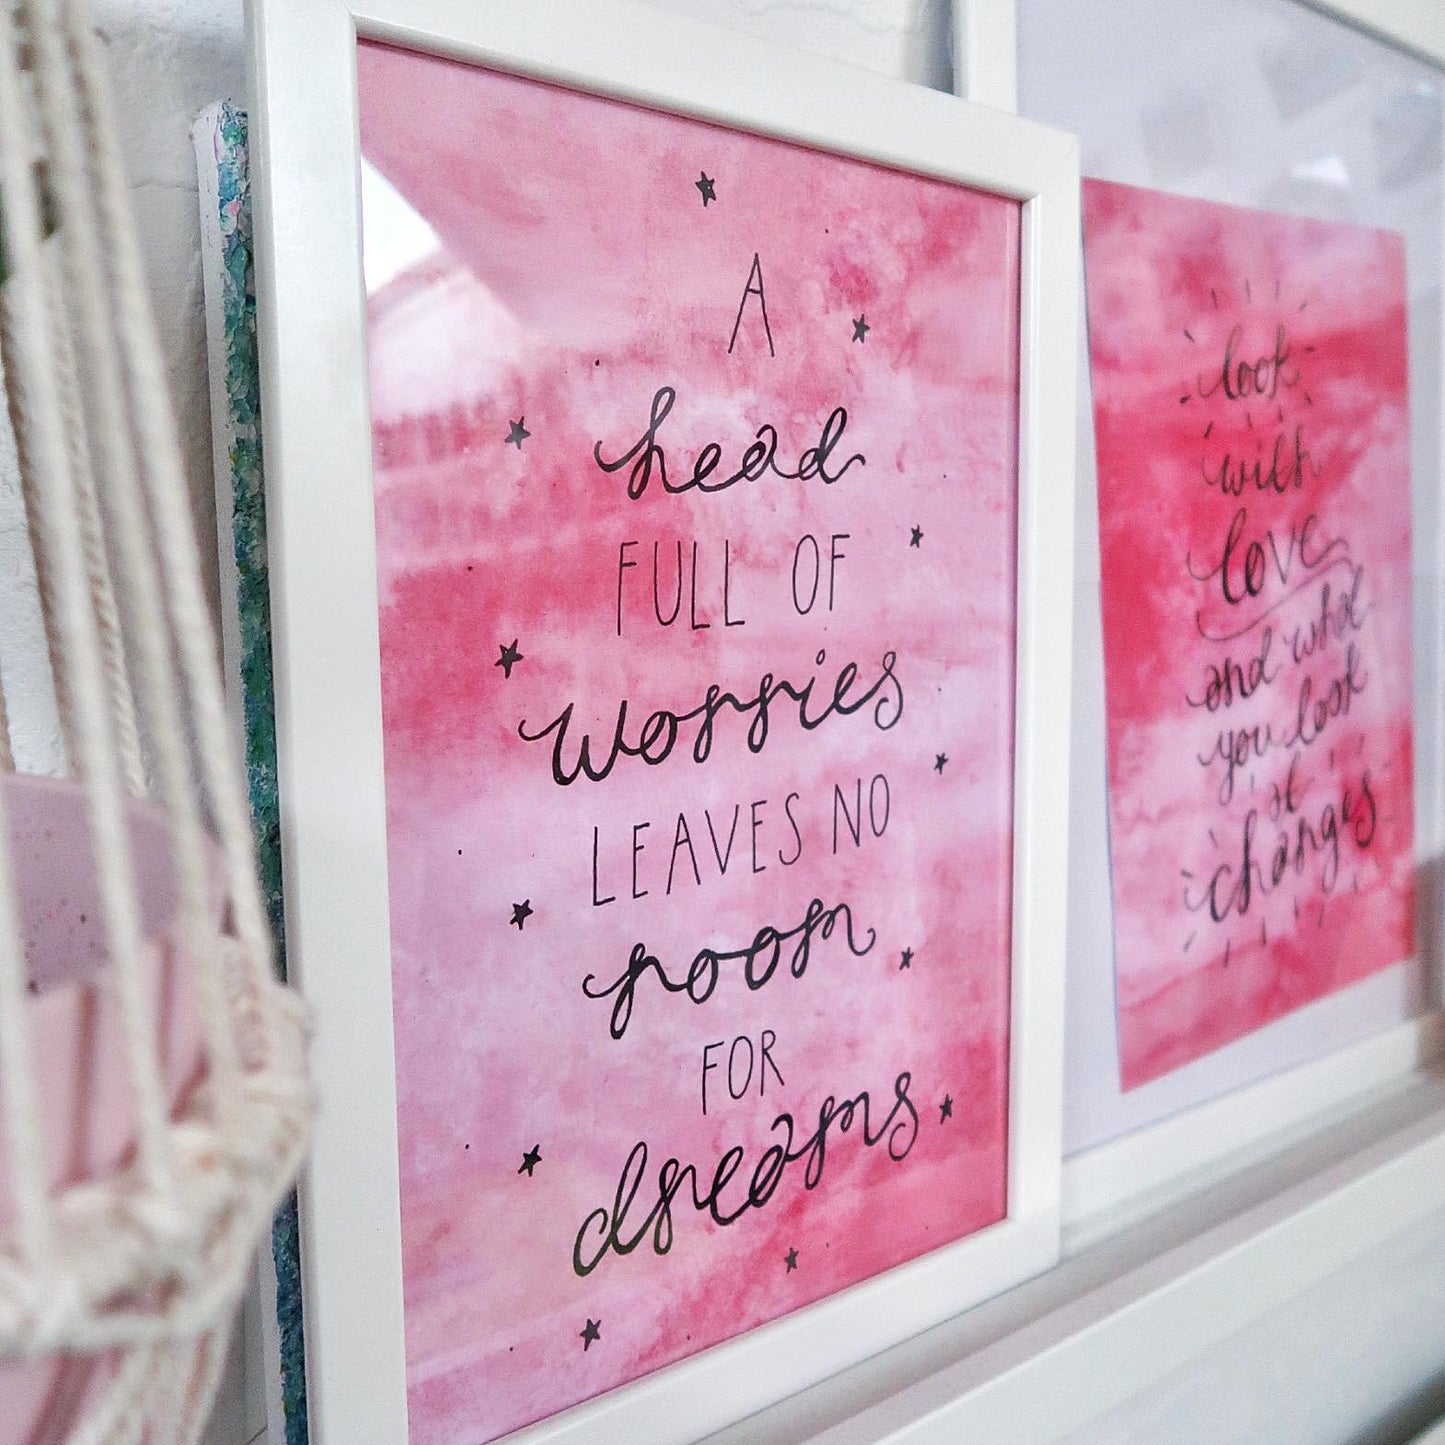 A
head
FULL OF
worries
LEAVES NO
room
FOR
dreams
look
with
love
and what
you look
at
changes